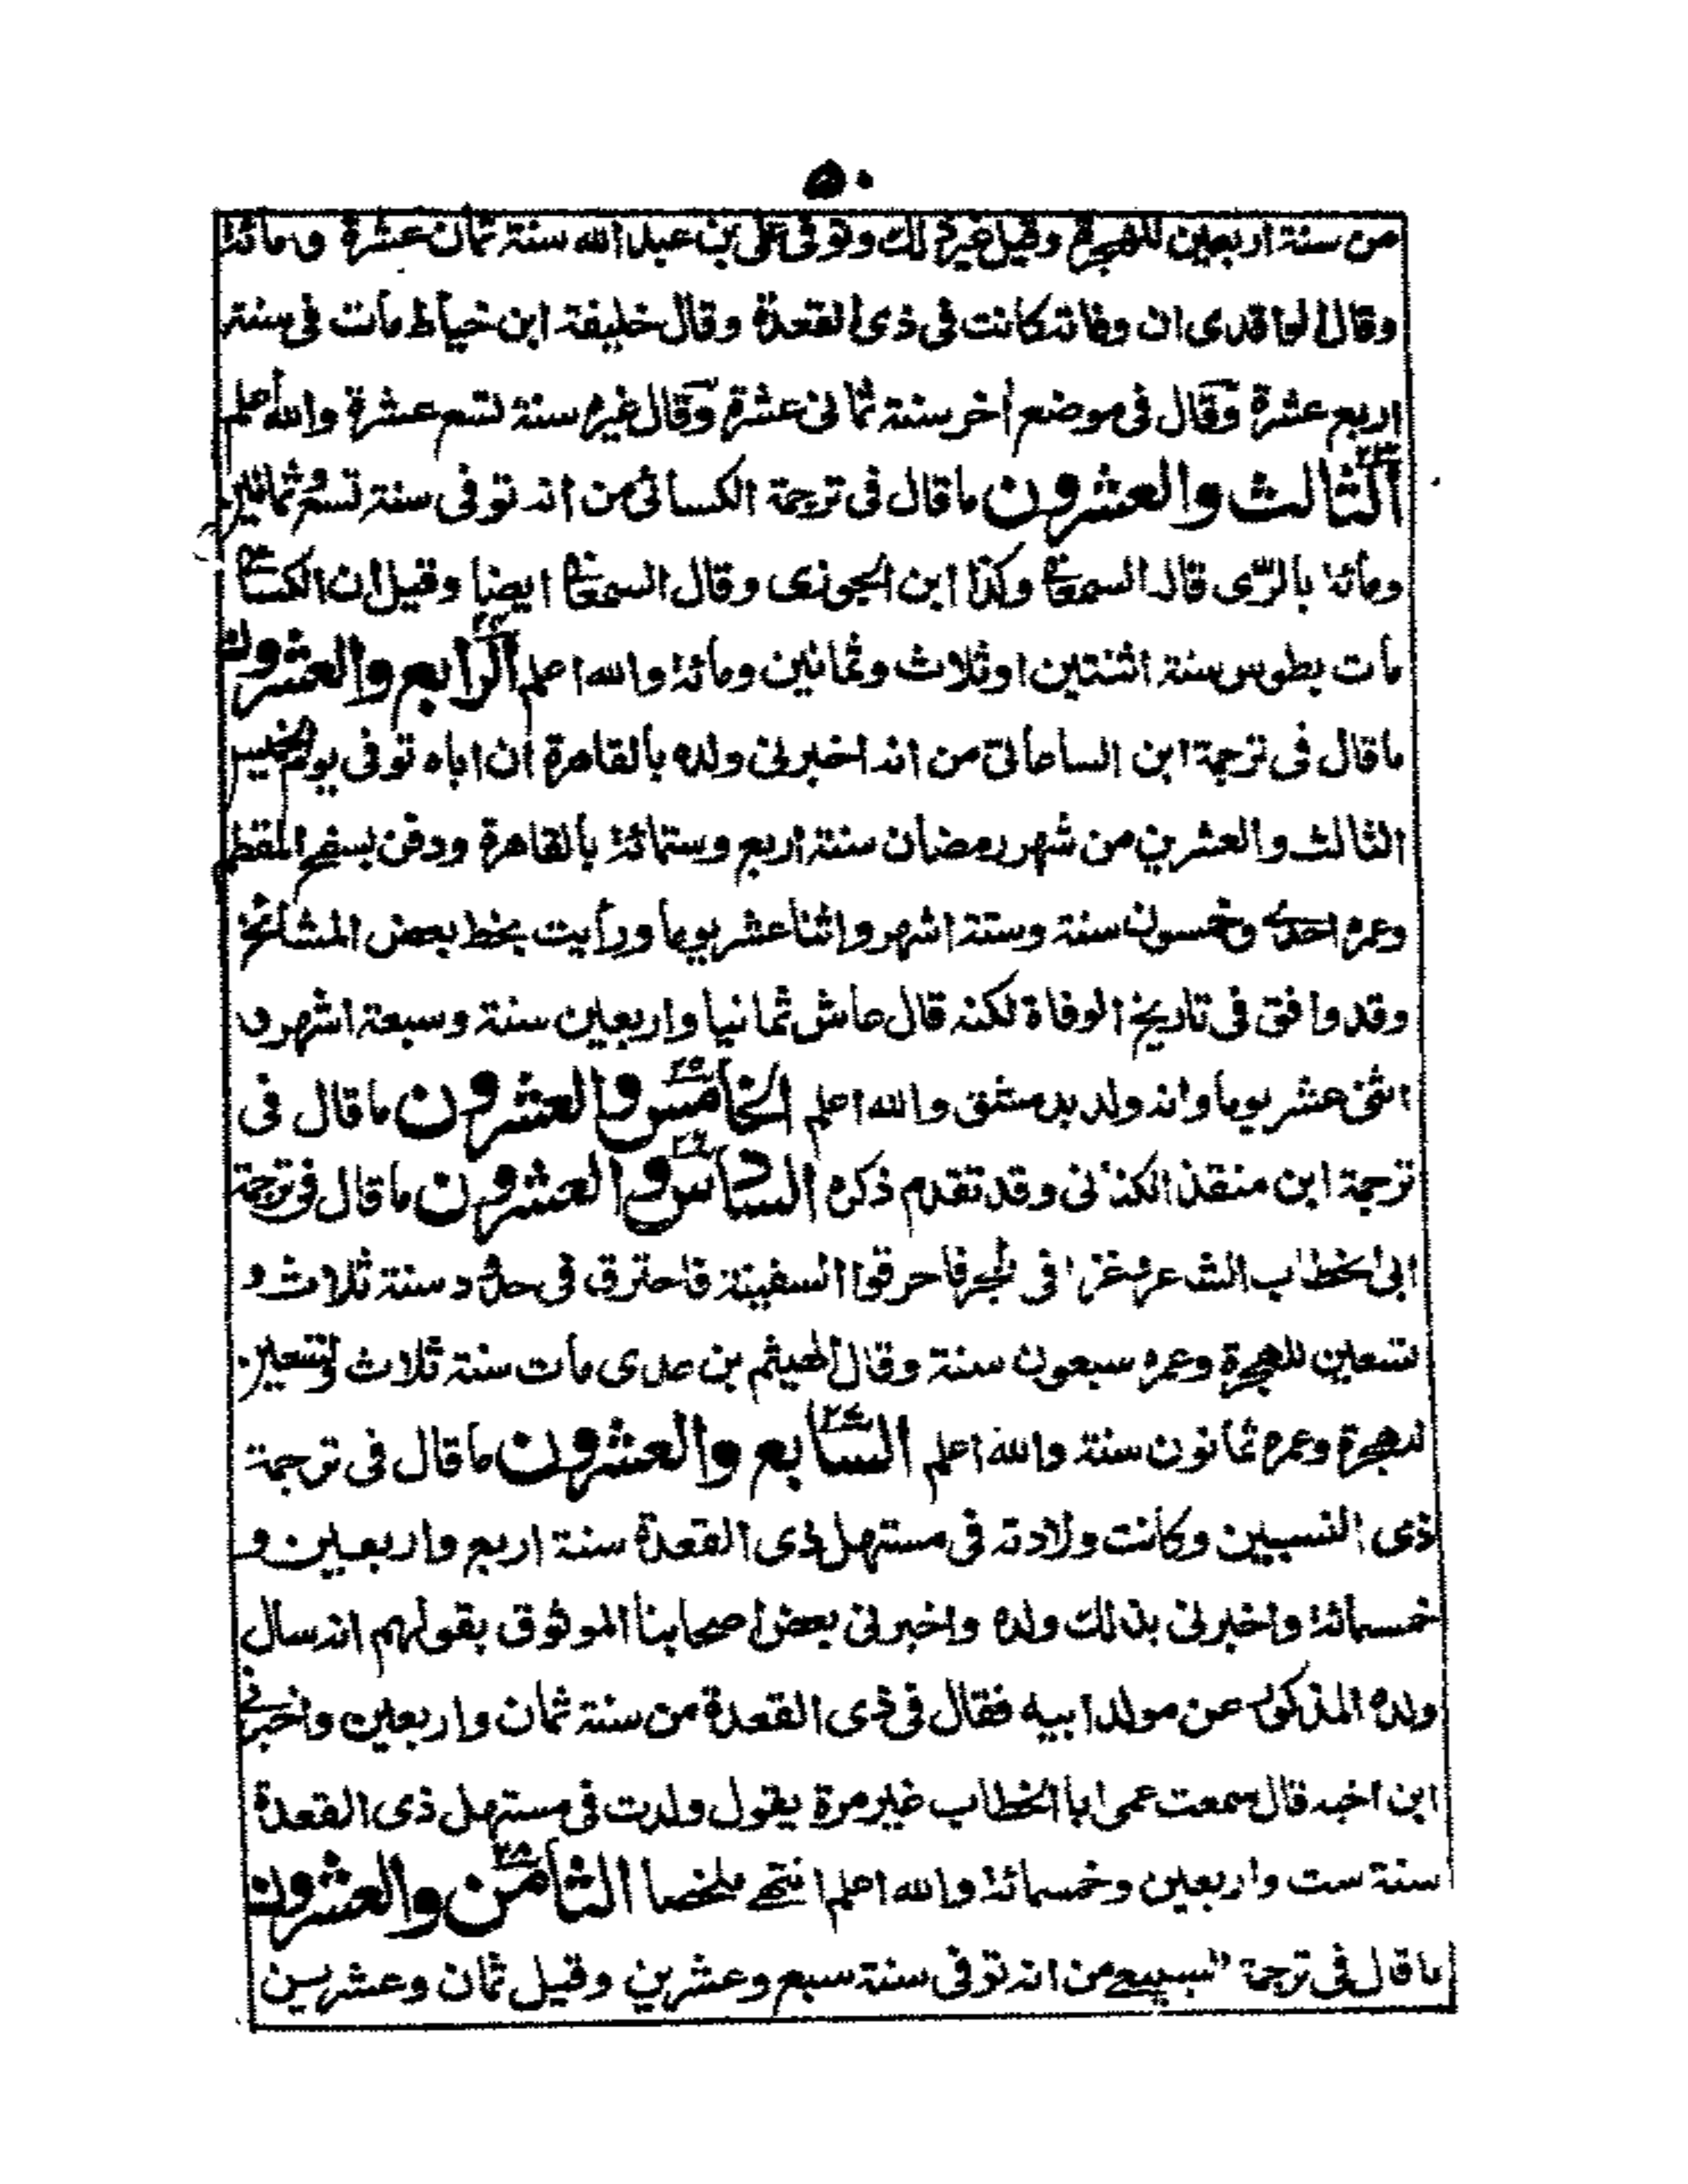 ٥٠
من سنة اربعين للهجرة وقيل غير ذلك وتوفى على بن عبد الله سنة ثمان عشرة ومائة
وقال الواقدى ان وفاته كانت فى ذى القعدة وقال خليفة ابن خياط مات فى سنة
اربع عشرة وقال فى موضع اخر سنة ثمانى عشرة وقال غيره سنة تسع عشرة والله اعلم
الثالث والعشرون ما قال فى ترجمة الكسائى من انه توفى سنة تسع وثمانين
ومائة بالرّى قاله السمعانى وكذا ابن الجوزى وقال السمعانى ايضا وقيل ان الكسائى
مات بطوس سنة اثنتين او ثلاث وثمانين ومائة والله اعلم الرابع والعشرون
ما قال فى ترجمة ابن الساعاتى من انه اخبرنى ولده بالقاهرة ان اباه توفى يوم الخميس
الثالث والعشرين من شهر رمضان سنة اربع وستمائة بالقاهرة ودفن بسفح المقطم
وعمره احدى وخمسون سنة وستة اشهر واثنا عشر يوما ورأيت بخط بعض المشائخ
وقد وافق فى تاريخ الوفاة لكنه قال عاش ثمانيا واربعين سنة وسبعة اشهر و
اثنى عشر يوما وانه ولد بدمشق والله اعلم الخامس والعشرون ما قال فى
ترجمة ابن منقذ الكنانى وقد تقدم ذكره السادس والعشرون ما قال فى ترجمة
ابى الخطاب الشاعر غزا فى البحر فاحرقوا السفينة فاحترق فى حدود سنة ثلاث و
تسعين للهجرة وعمره سبعون سنة وقال الهيثم بن عدى مات سنة ثلاث وتسعين
للهجرة وعمره ثمانون سنة والله اعلم السابع والعشرون ما قال فى ترجمة
ذى النسبين وكانت ولادته فى مستهل ذى القعدة سنة اربع واربعين و
خمسمائة واخبرنى بذلك ولده واخبرنى بعض اصحابنا الموثوق بقولهم انه سال
ولده المذكور عن مولد ابيه فقال فى ذى القعدة من سنة ثمان واربعين واخبرنى
ابن اخيه قال سمعت عمى ابا الخطاب غير مرة يقول ولدت فى مستهل ذى القعدة
سنة ست واربعين وخمسمائة والله اعلم انتهى ملخصا الثامن والعشرون
ما قال فى ترجمة السبيعى من انه توفى سنة سبع وعشرين وقيل ثمان وعشرين